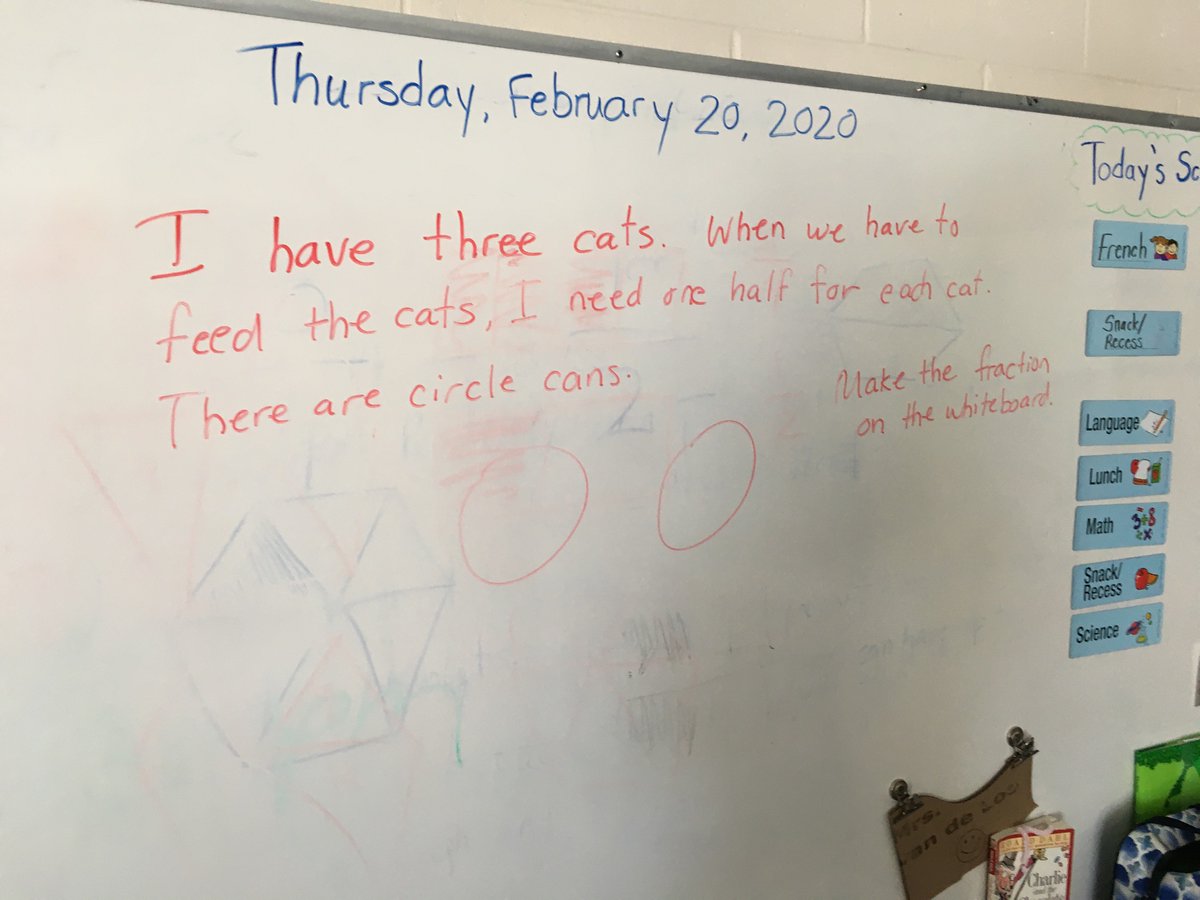 Thursday, February 20, 2020
I have three cats. When we have to
feed the cats, I need one half for each cat.
There are circle cans.
Make the fraction
on the whiteboard.
Today's Sc
French
Snack/
Recess
Language
Lunch
Math
Snack/
Recess
Science
Mrs.
van de
ROALD DAHL
Charlie
and the